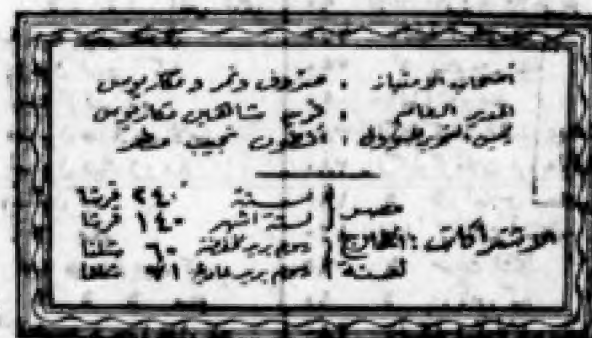 أصحاب الامتياز : صروف ونمر ومكاريوس
المدير العام : فارس شاهين مكاريوس
رئيس التحرير المسؤول : أنطون نجيب مطر
الاشتراكات :
مصر
لسنة ٢٤٠ قرشا
لستة أشهر ١٤٠ قرشا
الخارج لسنة
برسم بريد مخفضة ٦٠ شلنا
برسم بريد عادي شلنا